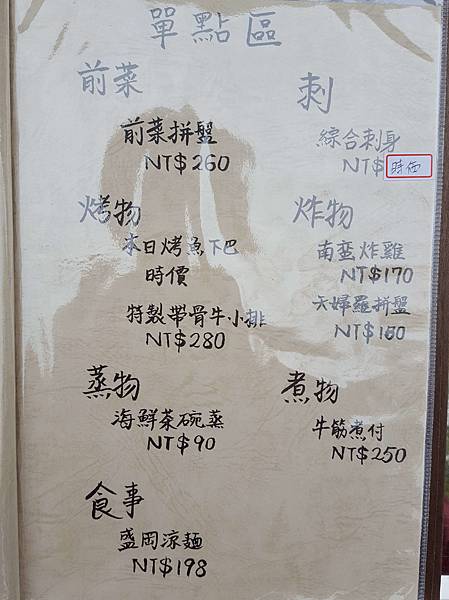 單點區
前菜
前菜拼盤
NT$260
刺
綜合刺身
NT$時価
烤物
本日烤魚下巴
時價
特製帶骨牛小排
NT$280
炸物
南蛮炸雞
NT$170
天婦羅拼盤
NT$160
蒸物
海鮮茶碗蒸
NT$90
煮物
牛筋煮付
NT$250
食事
盛岡涼麵
NT$198